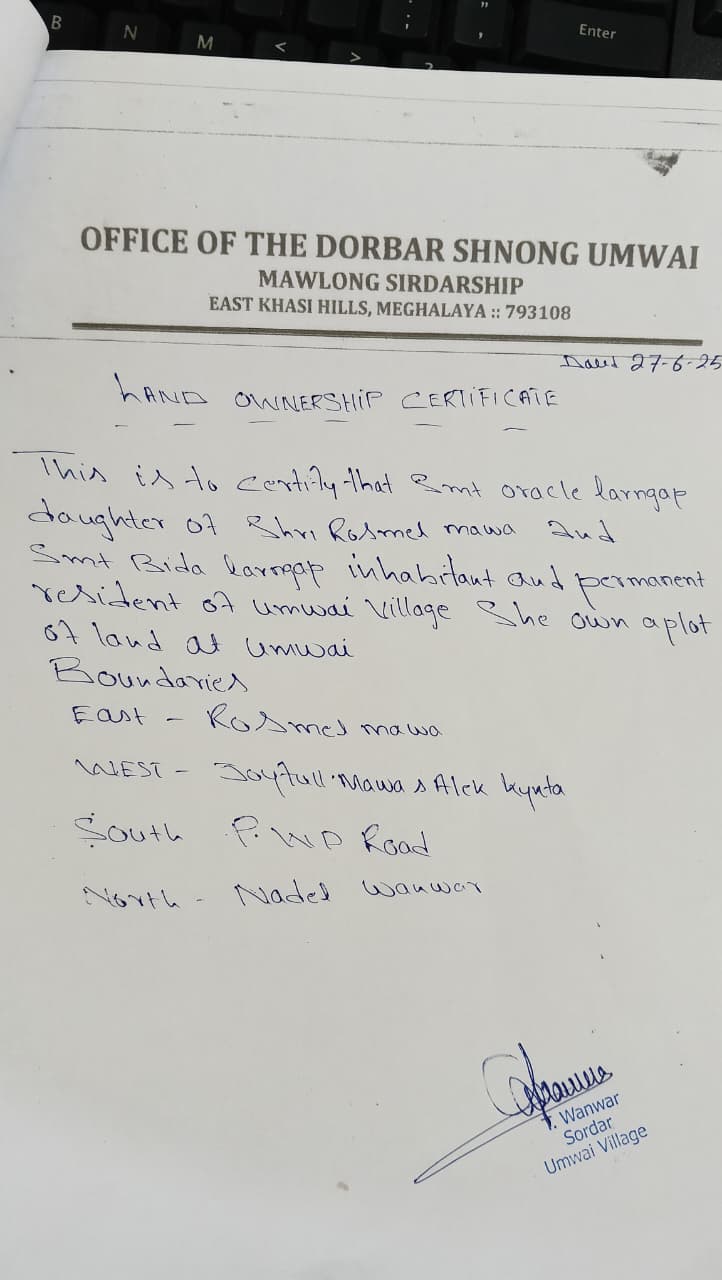 B N M < > ? : ; " , Enter
OFFICE OF THE DORBAR SHNONG UMWAI
MAWLONG SIRDARSHIP
EAST KHASI HILLS, MEGHALAYA :: 793108
Dated 27-6-25
LAND OWNERSHIP CERTIFICATE
This is to certify that Smt oracle larngap
daughter of Shri Rosmel mawa and
Smt Bida larngap inhabitant and permanent
resident of umwai Village She own a plot
of land at umwai
Boundaries
East - Rosmel mawa
WEST - Joyfull Mawa & Alek kynta
South P.W.D Road
North - Nadel Wanwar
Wanwar
Sordar
Umwai Village